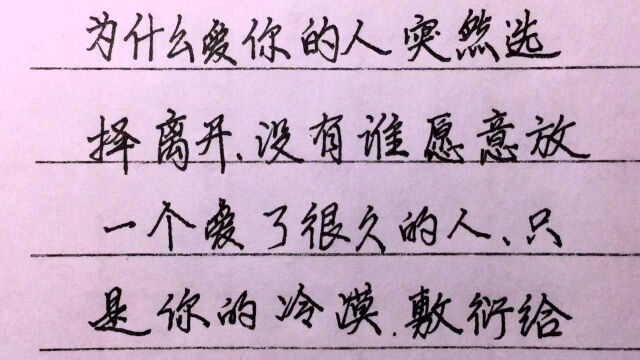 为什么爱你的人突然选
择离开、没有谁愿意放
一个爱了很久的人、只
是你的冷漠.敷衍给